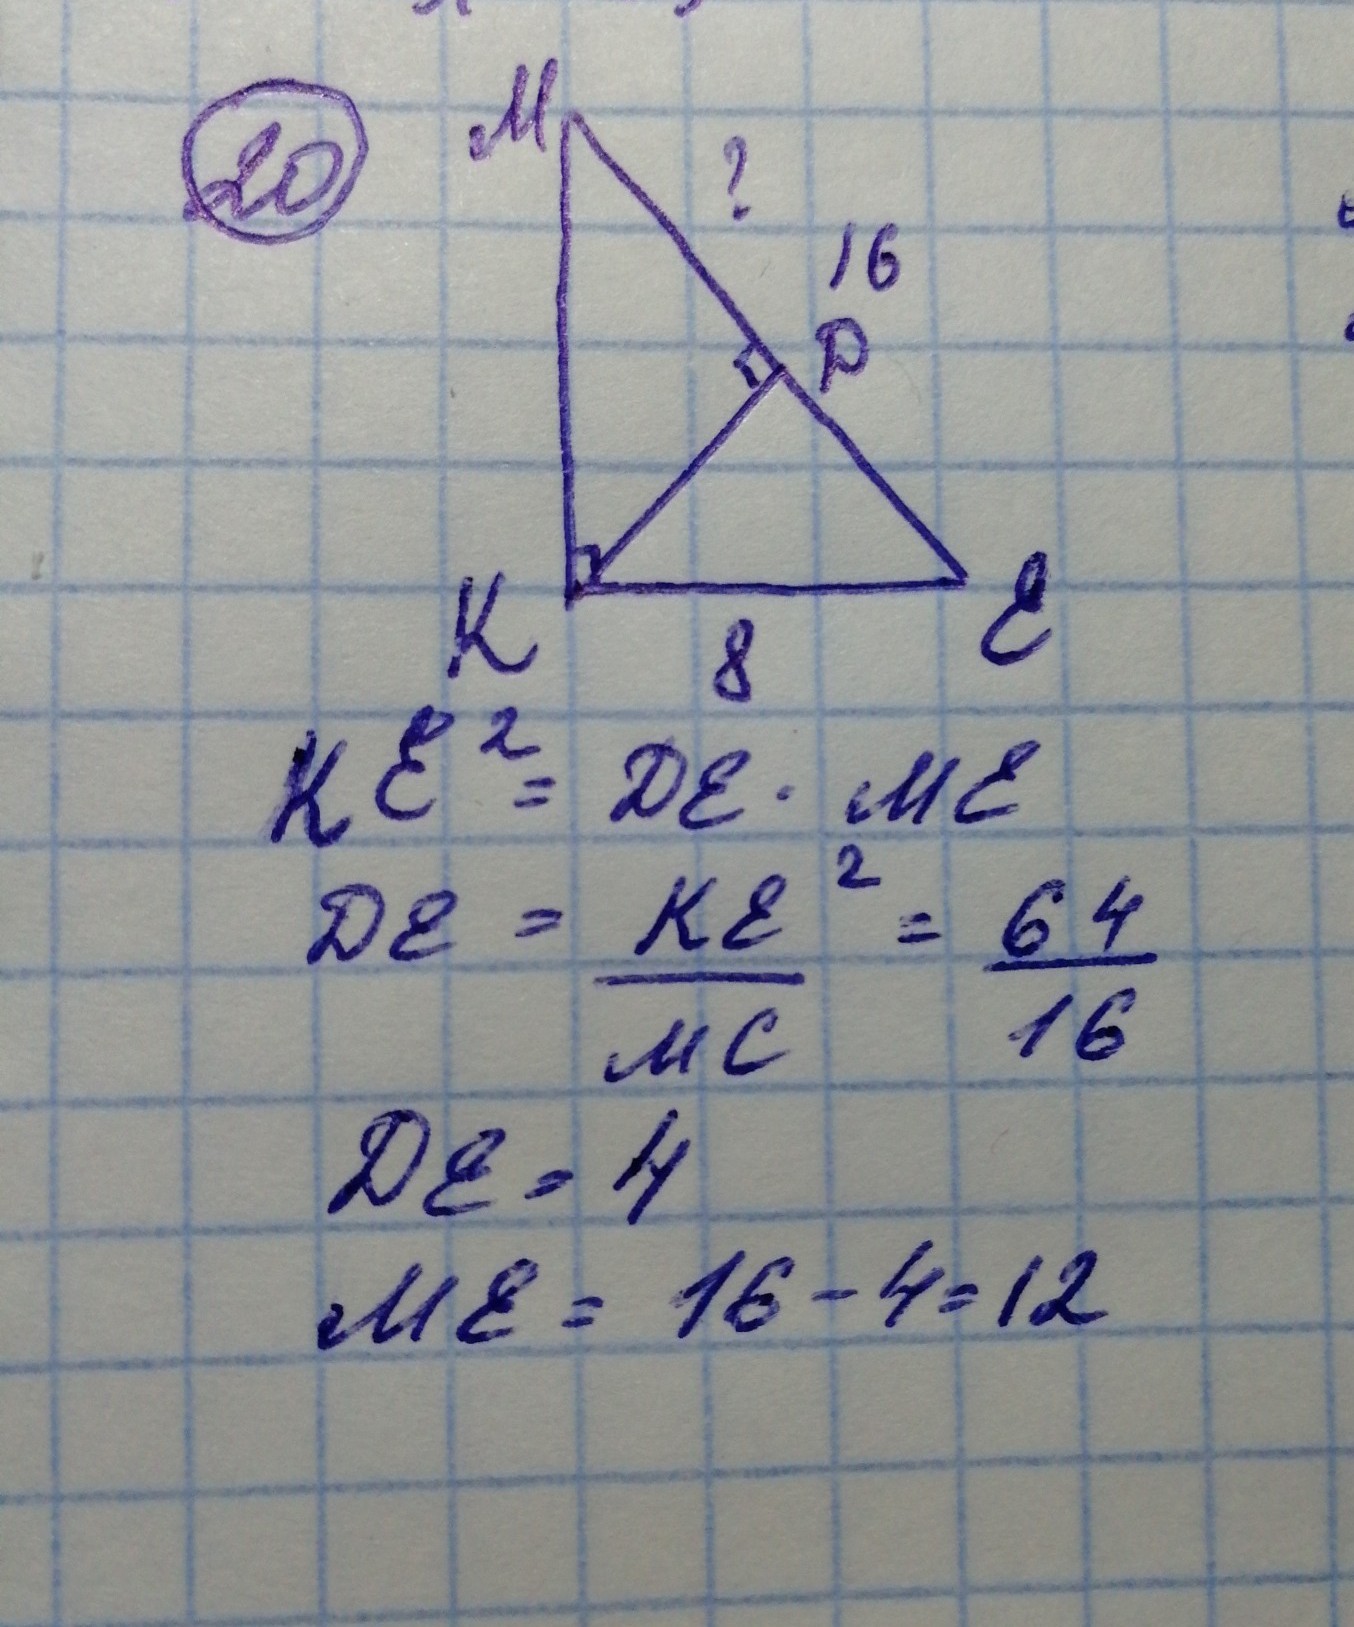 20
М
?
16
D
К
8
E
KE² = DE · ME
DE = KE² / MC = 64 / 16
DE = 4
ME = 16 - 4 = 12